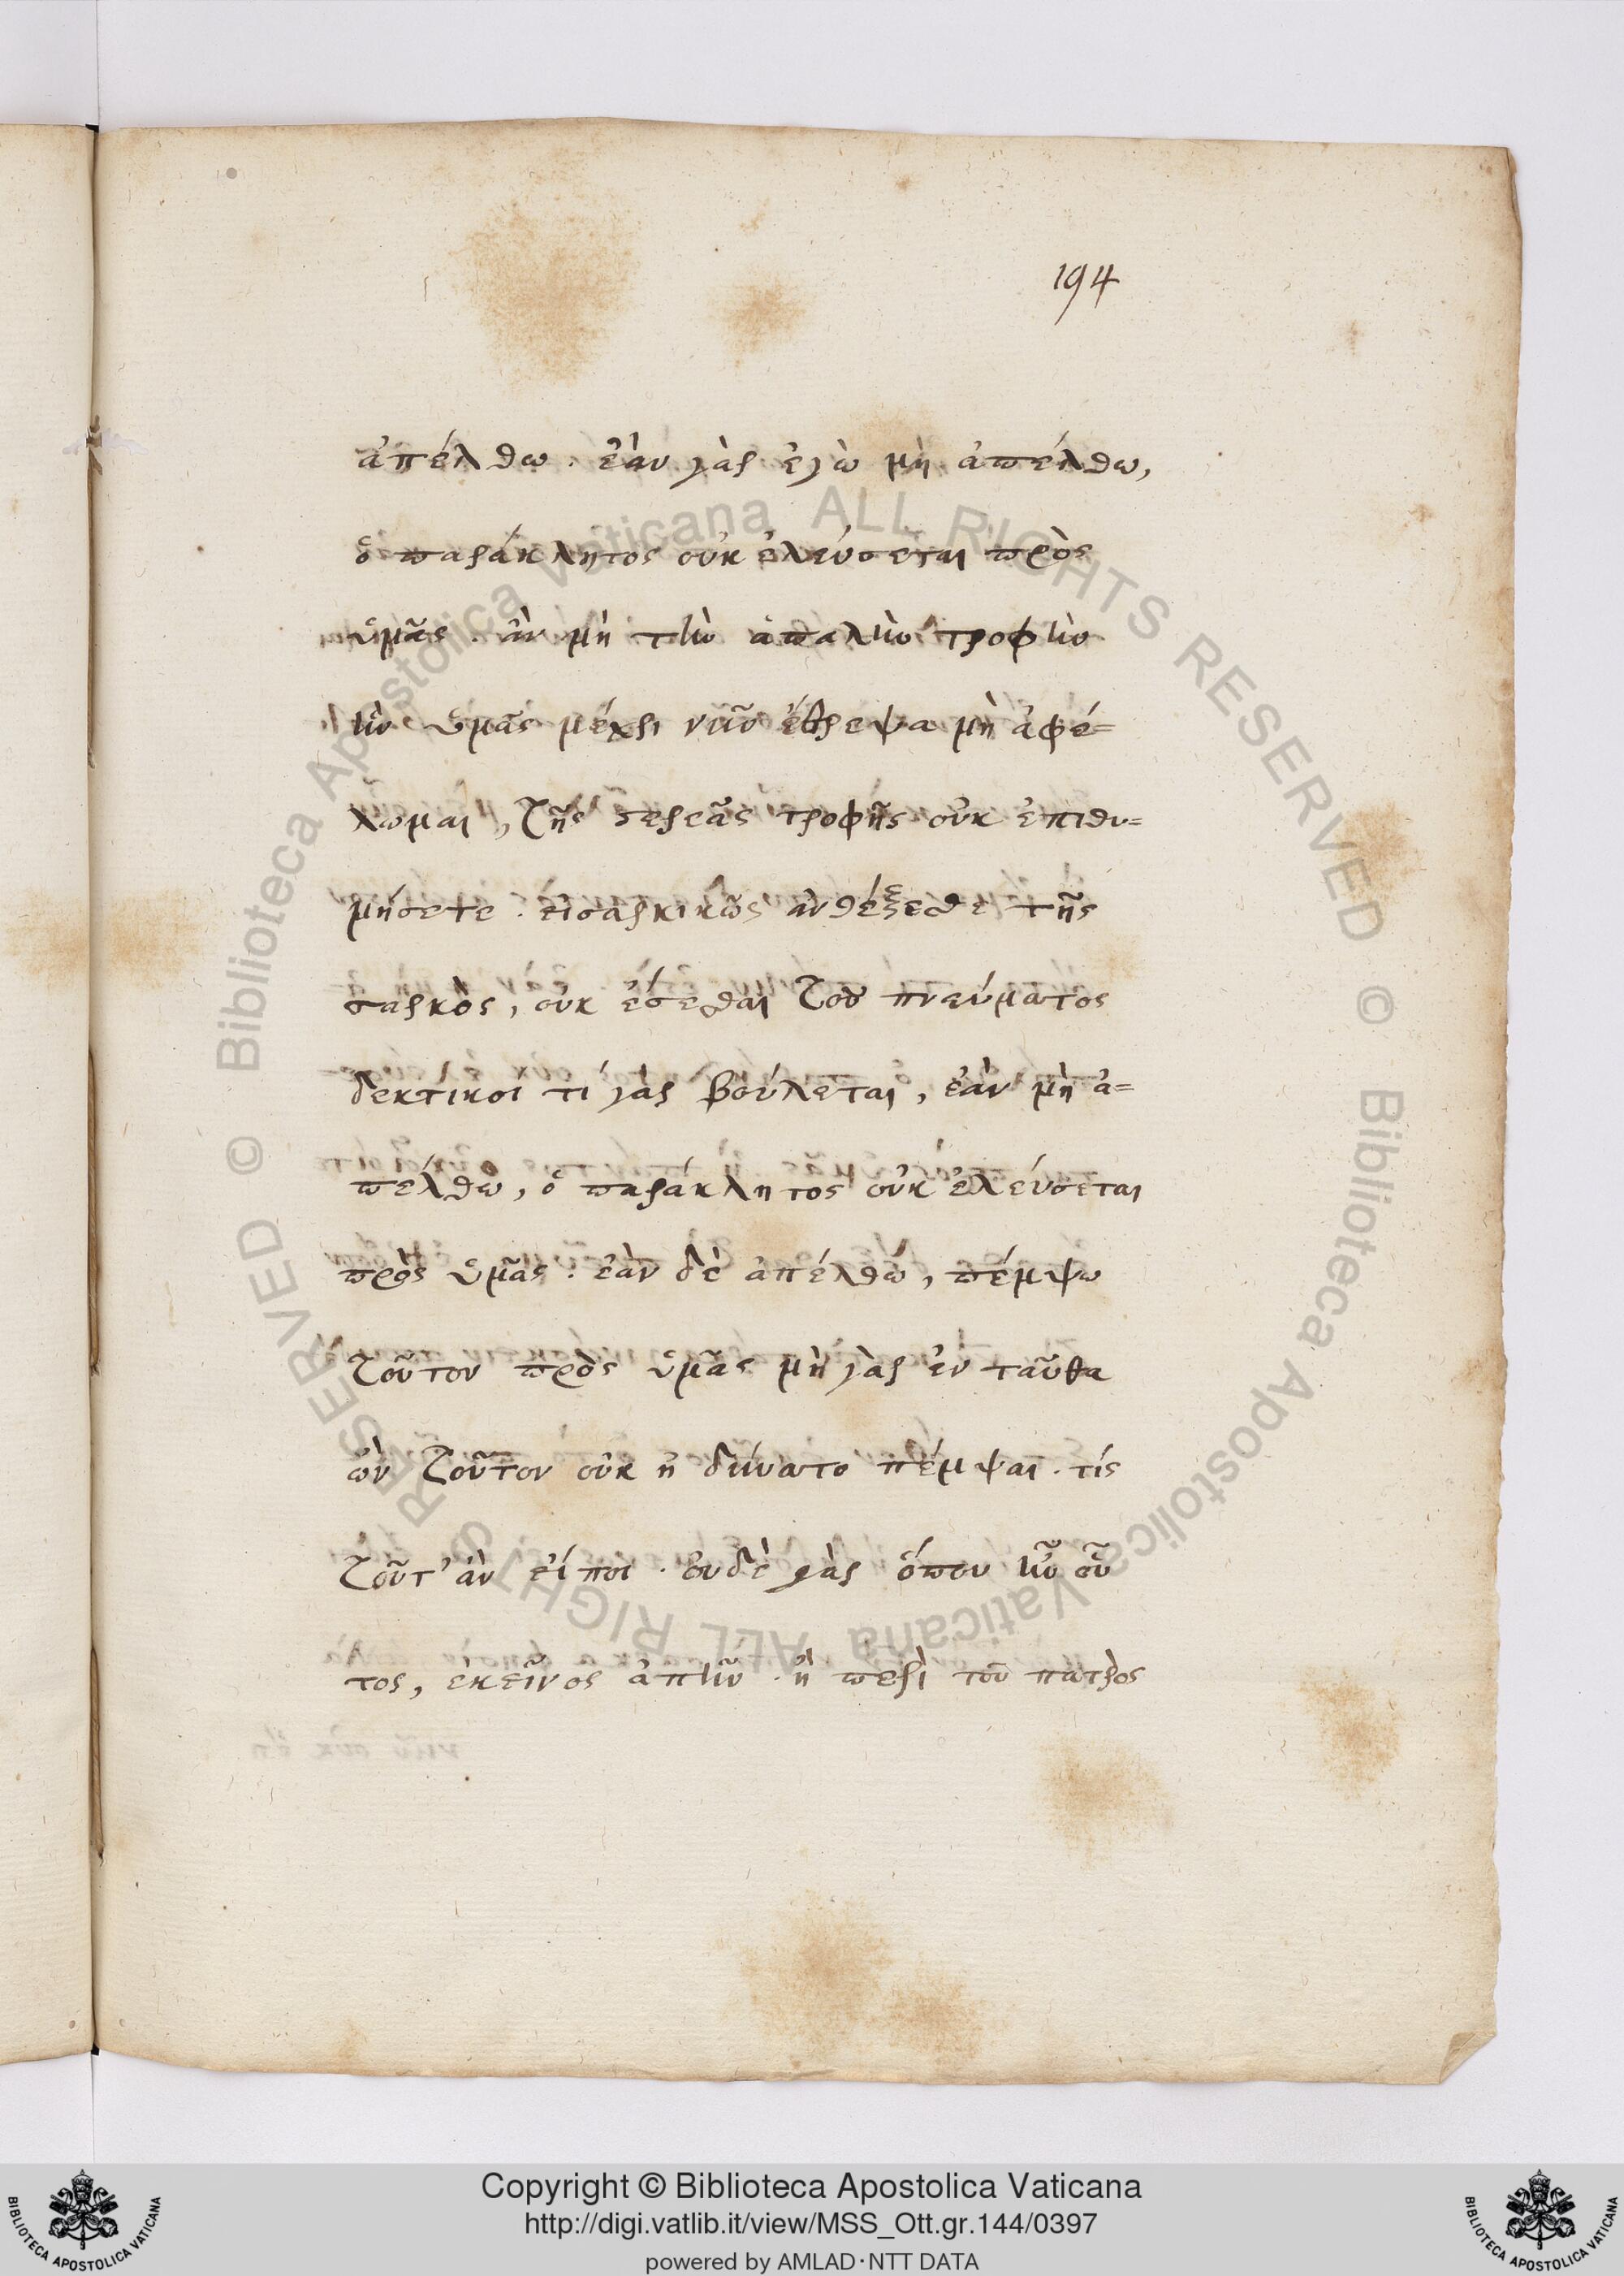 194
ἀπέλθω. ἐὰν γὰρ ἐγὼ μὴ ἀπέλθω,
ὁ παράκλητος οὐκ ἐλεύσεται πρὸς
ὑμᾶς. ἂν μὴ τὴν ἁπαλὴν τροφὴν
ἣν ὑμᾶς μέχρι νῦν ἔθρεψα μὴ ἀφέ=
λωμαι, τῆς στερεᾶς τροφῆς οὐκ ἐπιθυ=
μήσετε. εἰ σαρκικῶς ἀνθέξεσθε τῆς
σαρκὸς, οὐκ ἔσεσθαι τοῦ πνεύματος
δεκτικοι τί γὰρ βούλεται, ἐὰν μὴ ἀ=
πέλθω, ὁ παράκλητος οὐκ ἐλεύσεται
πρὸς ὑμᾶς. ἐὰν δὲ ἀπέλθω, πέμψω
τοῦτον πρὸς ὑμᾶς μὴ γὰρ ἐν ταῦθα
ὢν τοῦτον οὐκ ἠδύνατο πέμψαι. τίς
τοῦτ' ἂν εἴποι. οὐδὲ γὰρ ὅπου ἦν οὗ
τος, ἐκεῖνος ἀπῆν. ἢ περὶ τοῦ πατρὸς
© Biblioteca Apostolica Vaticana ALL RIGHTS RESERVED © Biblioteca Apostolica Vaticana ALL RIGHTS RESERVED
Copyright © Biblioteca Apostolica Vaticana
http://digi.vatlib.it/view/MSS_Ott.gr.144/0397
powered by AMLAD·NTT DATA
BIBLIOTECA APOSTOLICA VATICANA
BIBLIOTECA APOSTOLICA VATICANA